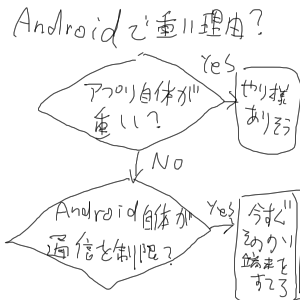 Androidで重い理由?
Yes
アプリ自体が
重い?
やり様
ありそう
No
Android自体が
通信を制限?
Yes
今すぐ
そのゴミ
端末を
すてろ